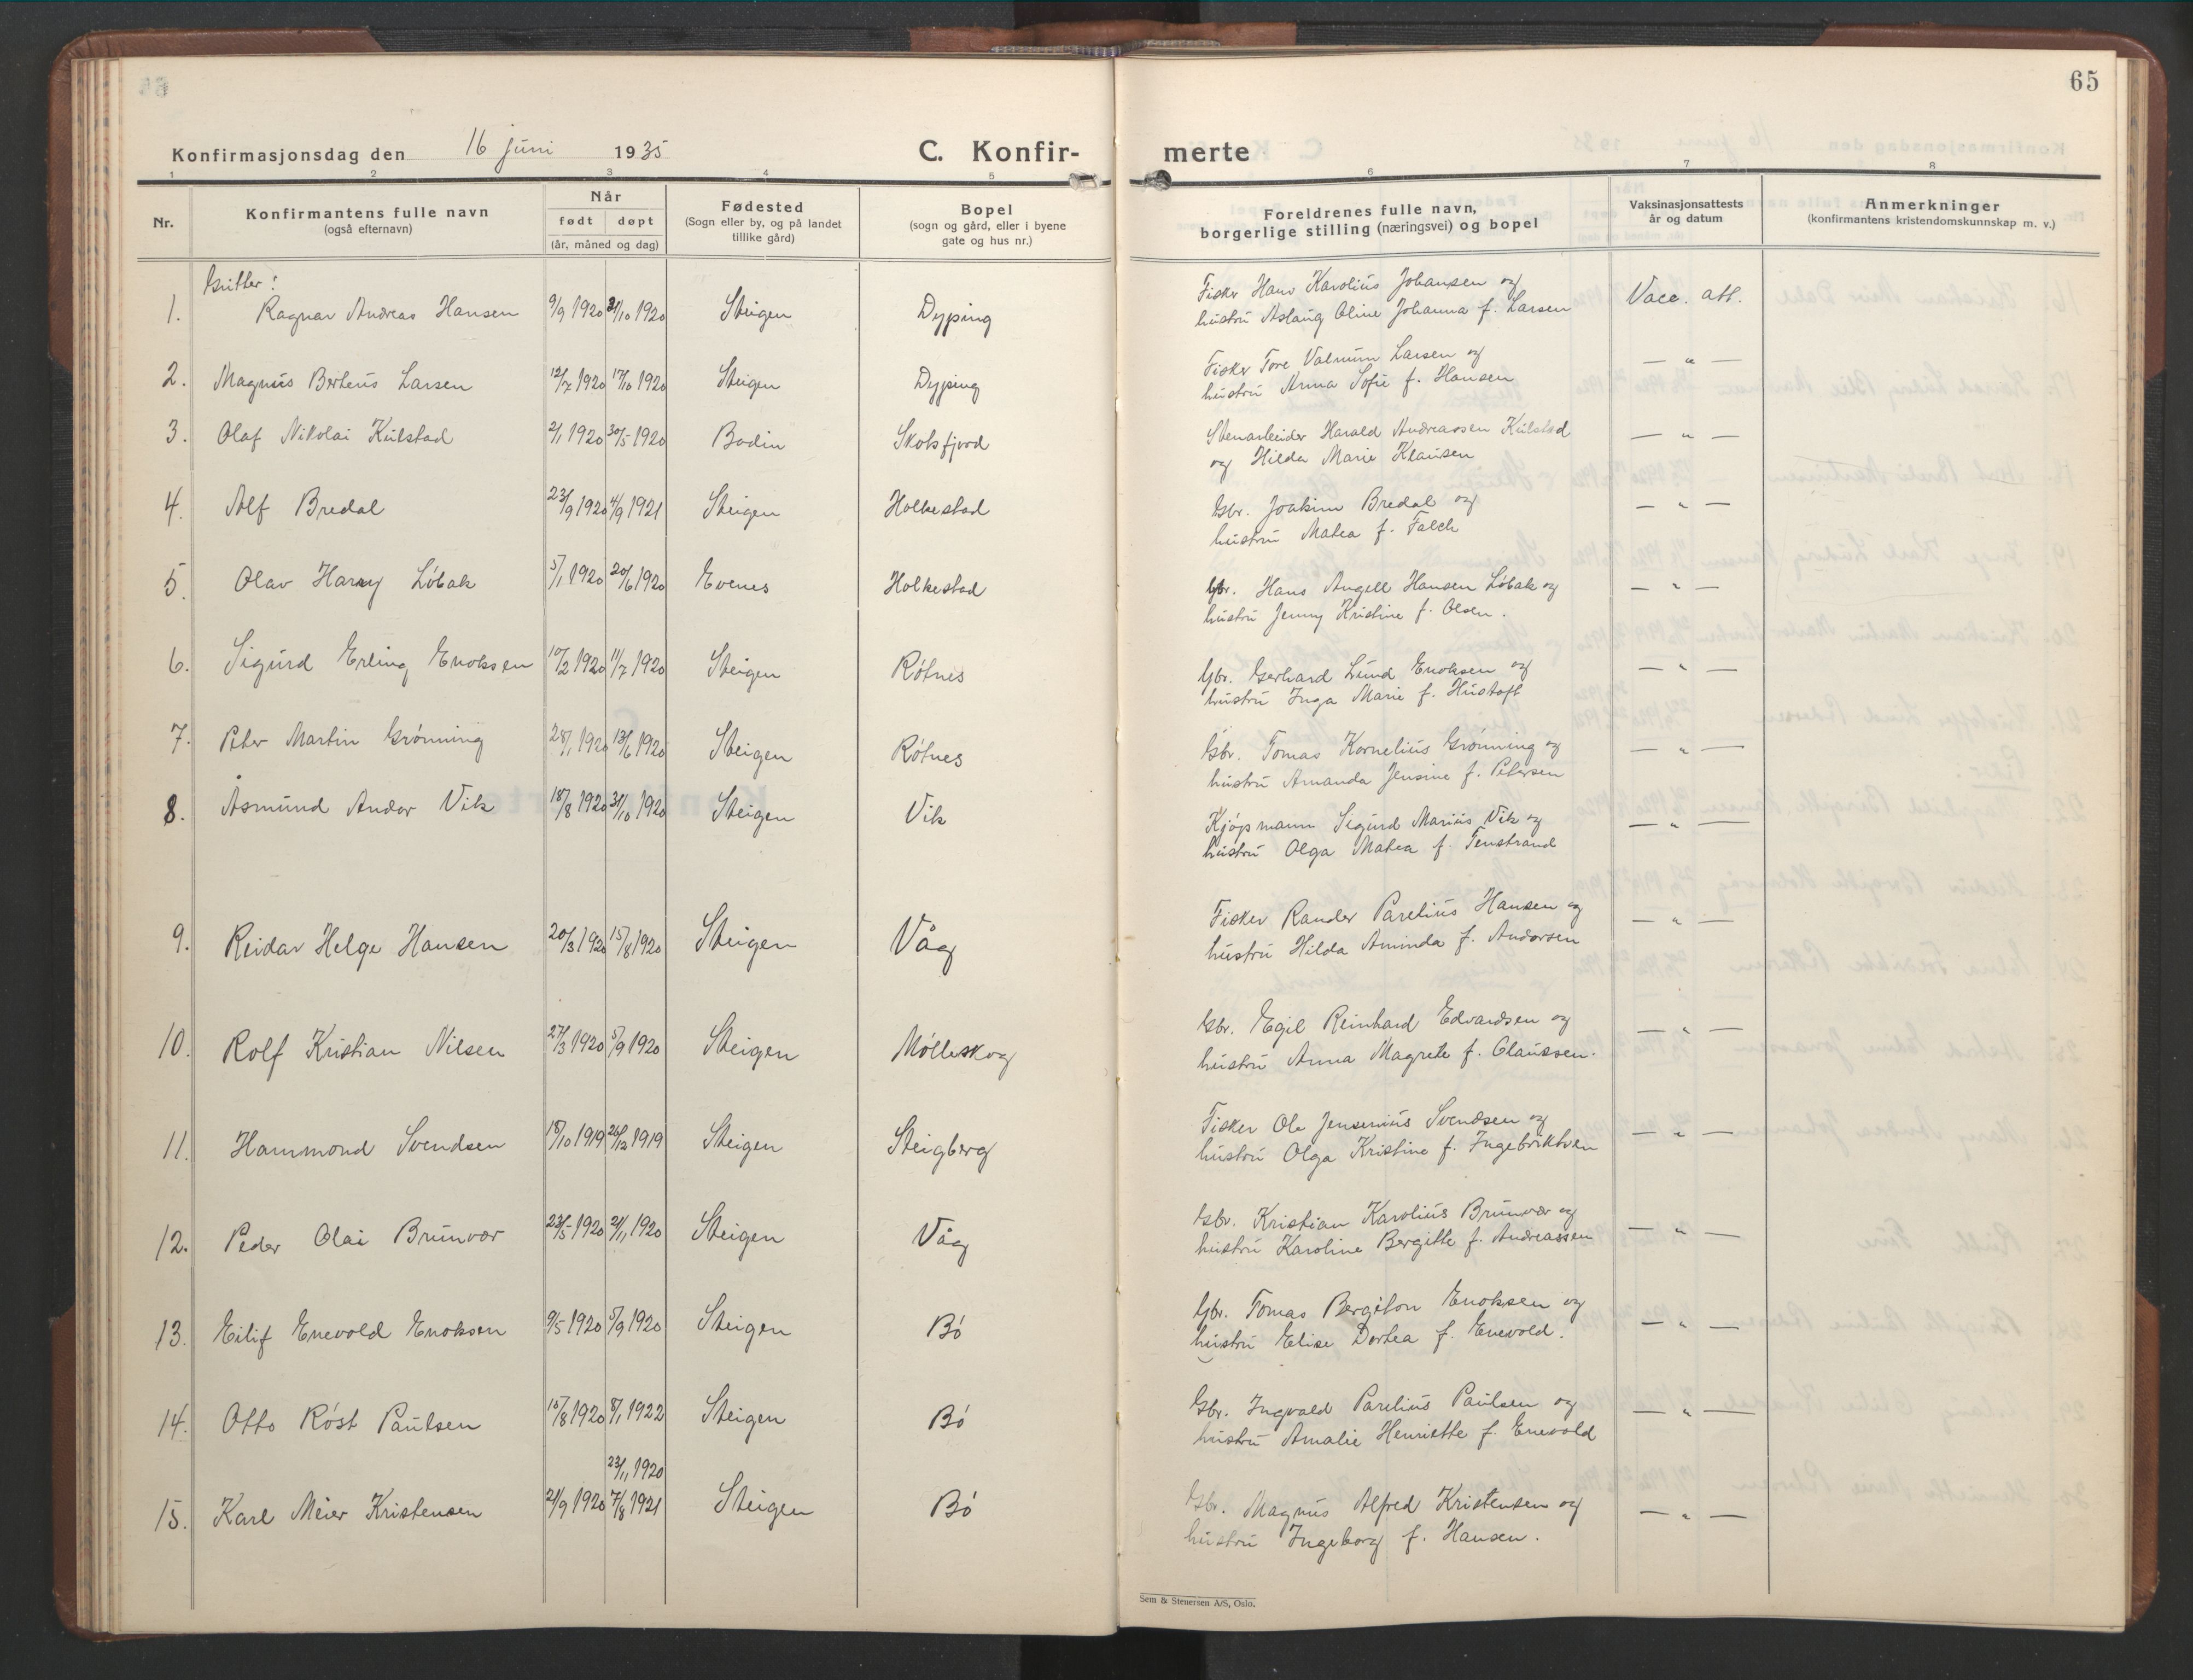 65
Konfirmasjonsdag den 16 juni 1935
C. Konfir- merte
1 2 3 4 5 6 7 8
Nr. Konfirmantens fulle navn (også efternavn)
Når
født døpt
(år, måned og dag)
Fødested
(Sogn eller by, og på landet tillike gård)
Bopel
(sogn og gård, eller i byene gate og hus nr.)
Foreldrenes fulle navn,
borgerlige stilling (næringsvei) og bopel
Vaksinasjonsattests
år og datum
Anmerkninger
(konfirmantens kristendomskunnskap m. v.)
Gutter:
1. Ragnar Andreas Hansen 9/9 1920 31/10 1920 Steigen Dyping Fisker Hans Karolius Johansen og Vacc. att.
hustru Aslaug Oline Johanna f. Larsen
2. Magnus Berteus Larsen 12/7 1920 17/10 1920 Steigen Dyping Fisker Tore Valnum Larsen og — " —
hustru Anna Sofie f. Hansen
3. Olaf Nikolai Kulstad 2/1 1920 30/5 1920 Bodin Skotsfjord Stenarbeider Harald Andreassen Kulstad — " —
og Hilda Marie Klausen
4. Alf Bredal 23/9 1920 4/9 1921 Steigen Holkestad Gbr. Joakim Bredal og — " —
hustru Matea f. Falch
5. Olav Harry Löbak 5/1 1920 20/6 1920 Evenes Holkestad Gbr. Hans Angell Hansen Löbak og — " —
hustru Jenny Kristine f. Olsen.
6. Sigurd Erling Enoksen 10/2 1920 11/7 1920 Steigen Rötnes Gbr. Gerhard Lund Enoksen og — " —
hustru Inga Marie f. Hustoft
7. Peter Martin Grönning 28/1 1920 13/6 1920 Steigen Rötnes Gbr. Tomas Kornelius Grönning og — " —
hustru Amanda Jensine f. Petersen
8. Åsmund Andor Vik 18/8 1920 31/10 1920 Steigen Vik Kjöpmann Sigurd Marius Vik og — " —
hustru Olga Matea f. Tenstrand
9. Reidar Helge Hansen 20/3 1920 15/8 1920 Steigen Våg Fisker Rander Parelius Hansen og — " —
hustru Hilda Aminda f. Andorsen
10. Rolf Kristian Nilsen 27/3 1920 5/9 1920 Steigen Mölleskog Gbr. Egil Reinhard Edvardsen og — " —
hustru Anna Magrete f. Claussen.
11. Hammond Svendsen 18/10 1919 26/12 1919 Steigen Steigberg Fisker Ole Jensenius Svendsen og — " —
hustru Olga Kristine f. Ingebriktsen
12. Peder Olai Brunvær 23/5 1920 21/11 1920 Steigen Våg Gbr. Kristian Karolius Brunvær og — " —
hustru Karoline Bergitte f. Andreassen
13. Eilif Enevold Enoksen 9/5 1920 5/9 1920 Steigen Bö Gbr. Tomas Bergiton Enoksen og — " —
hustru Elise Dortea f. Enevold.
14. Otto Röst Paulsen 15/8 1920 8/1 1922 Steigen Bö Gbr. Ingvald Parelius Paulsen og — " —
hustru Amalie Henriette f. Enevold
23/11 1920
15. Karl Meier Kristensen 21/9 1920 7/8 1921 Steigen Bö Gbr. Magnus Alfred Kristensen og — " —
hustru Ingeborg f. Hansen.
Sem & Stenersen A/S, Oslo.